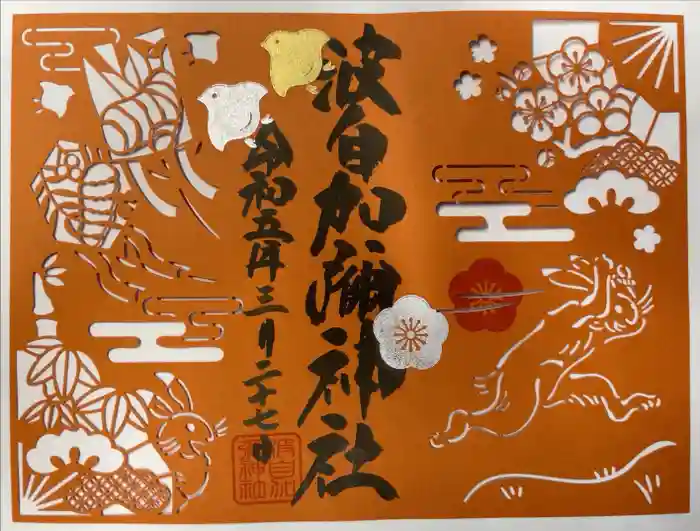 波自加彌神社
令和五年三月二十七日
波自加彌神社